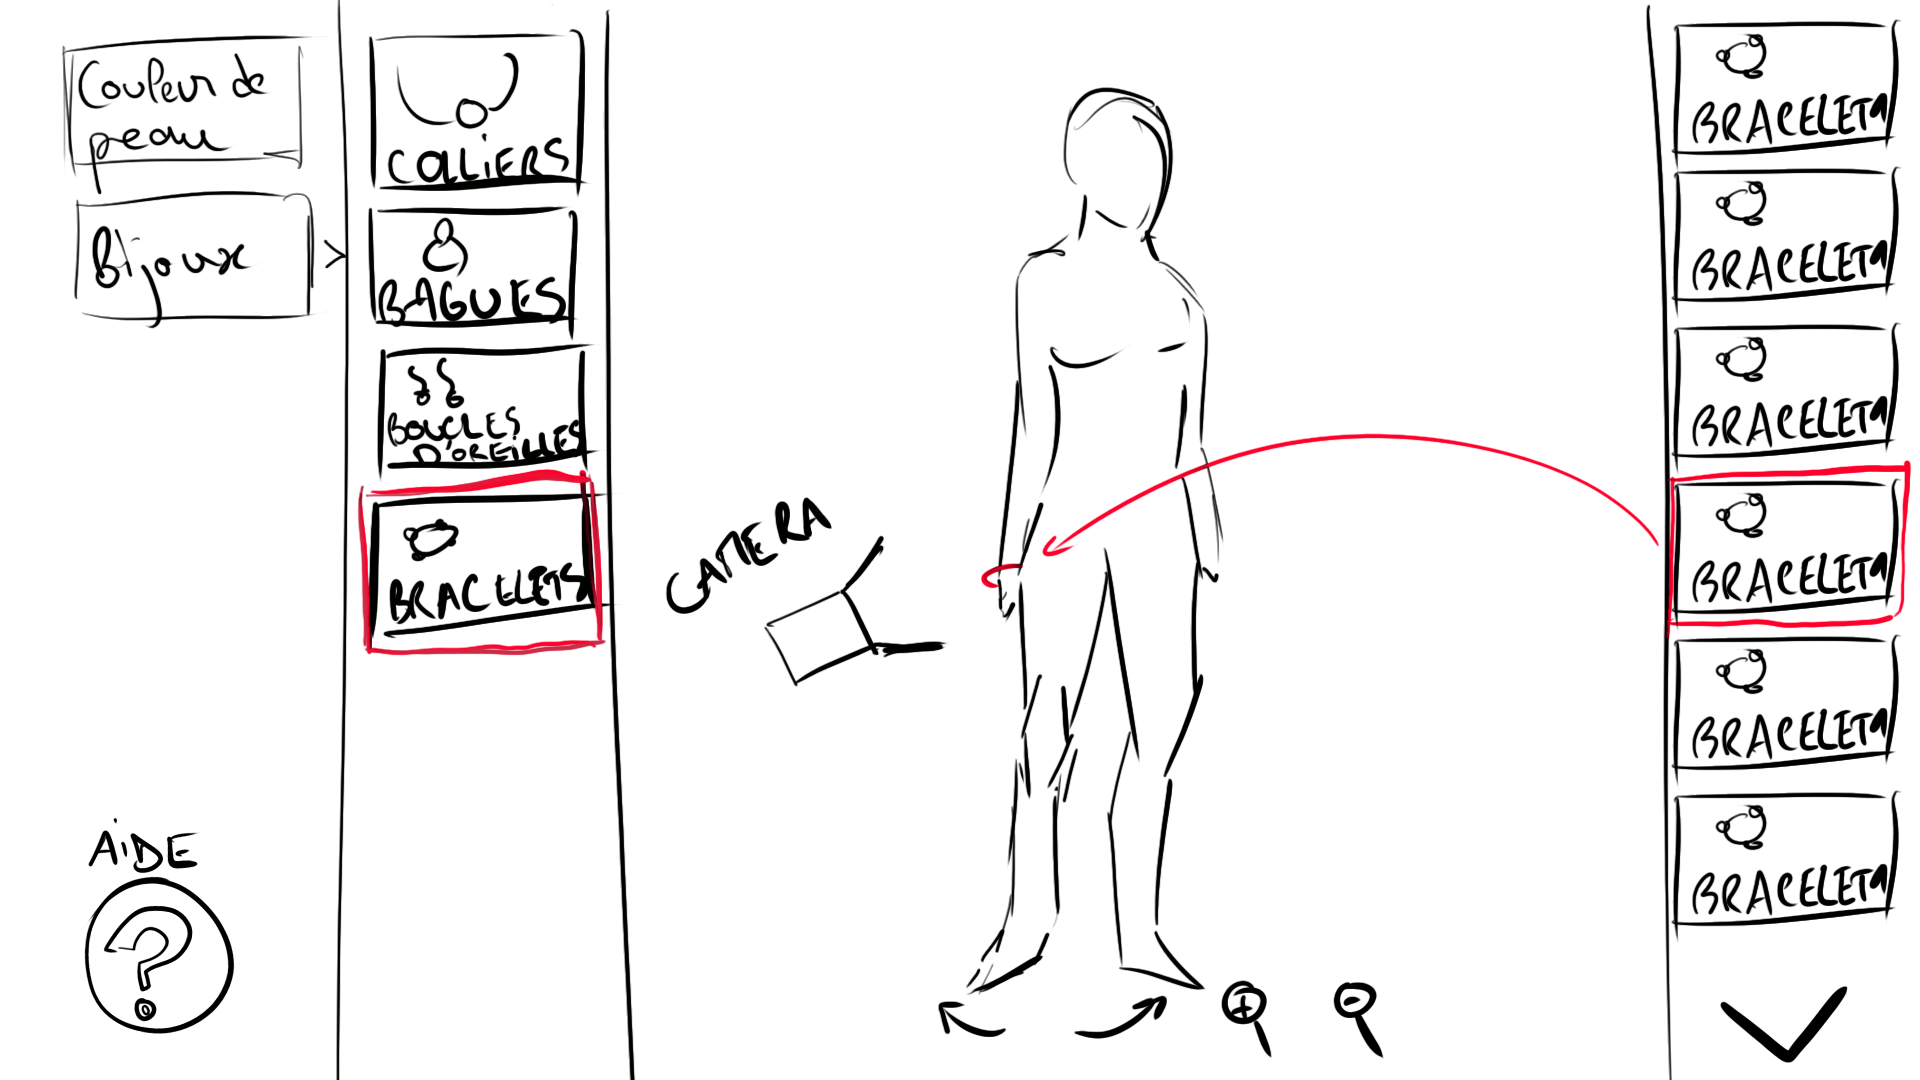 Couleur de
peau
Bijoux
>
AIDE
?
COLLIERS
BAGUES
BOUCLES
D'OREILLES
BRACELETS
CAMERA
BRACELETS
BRACELETS
BRACELETS
BRACELETS
BRACELETS
BRACELETS